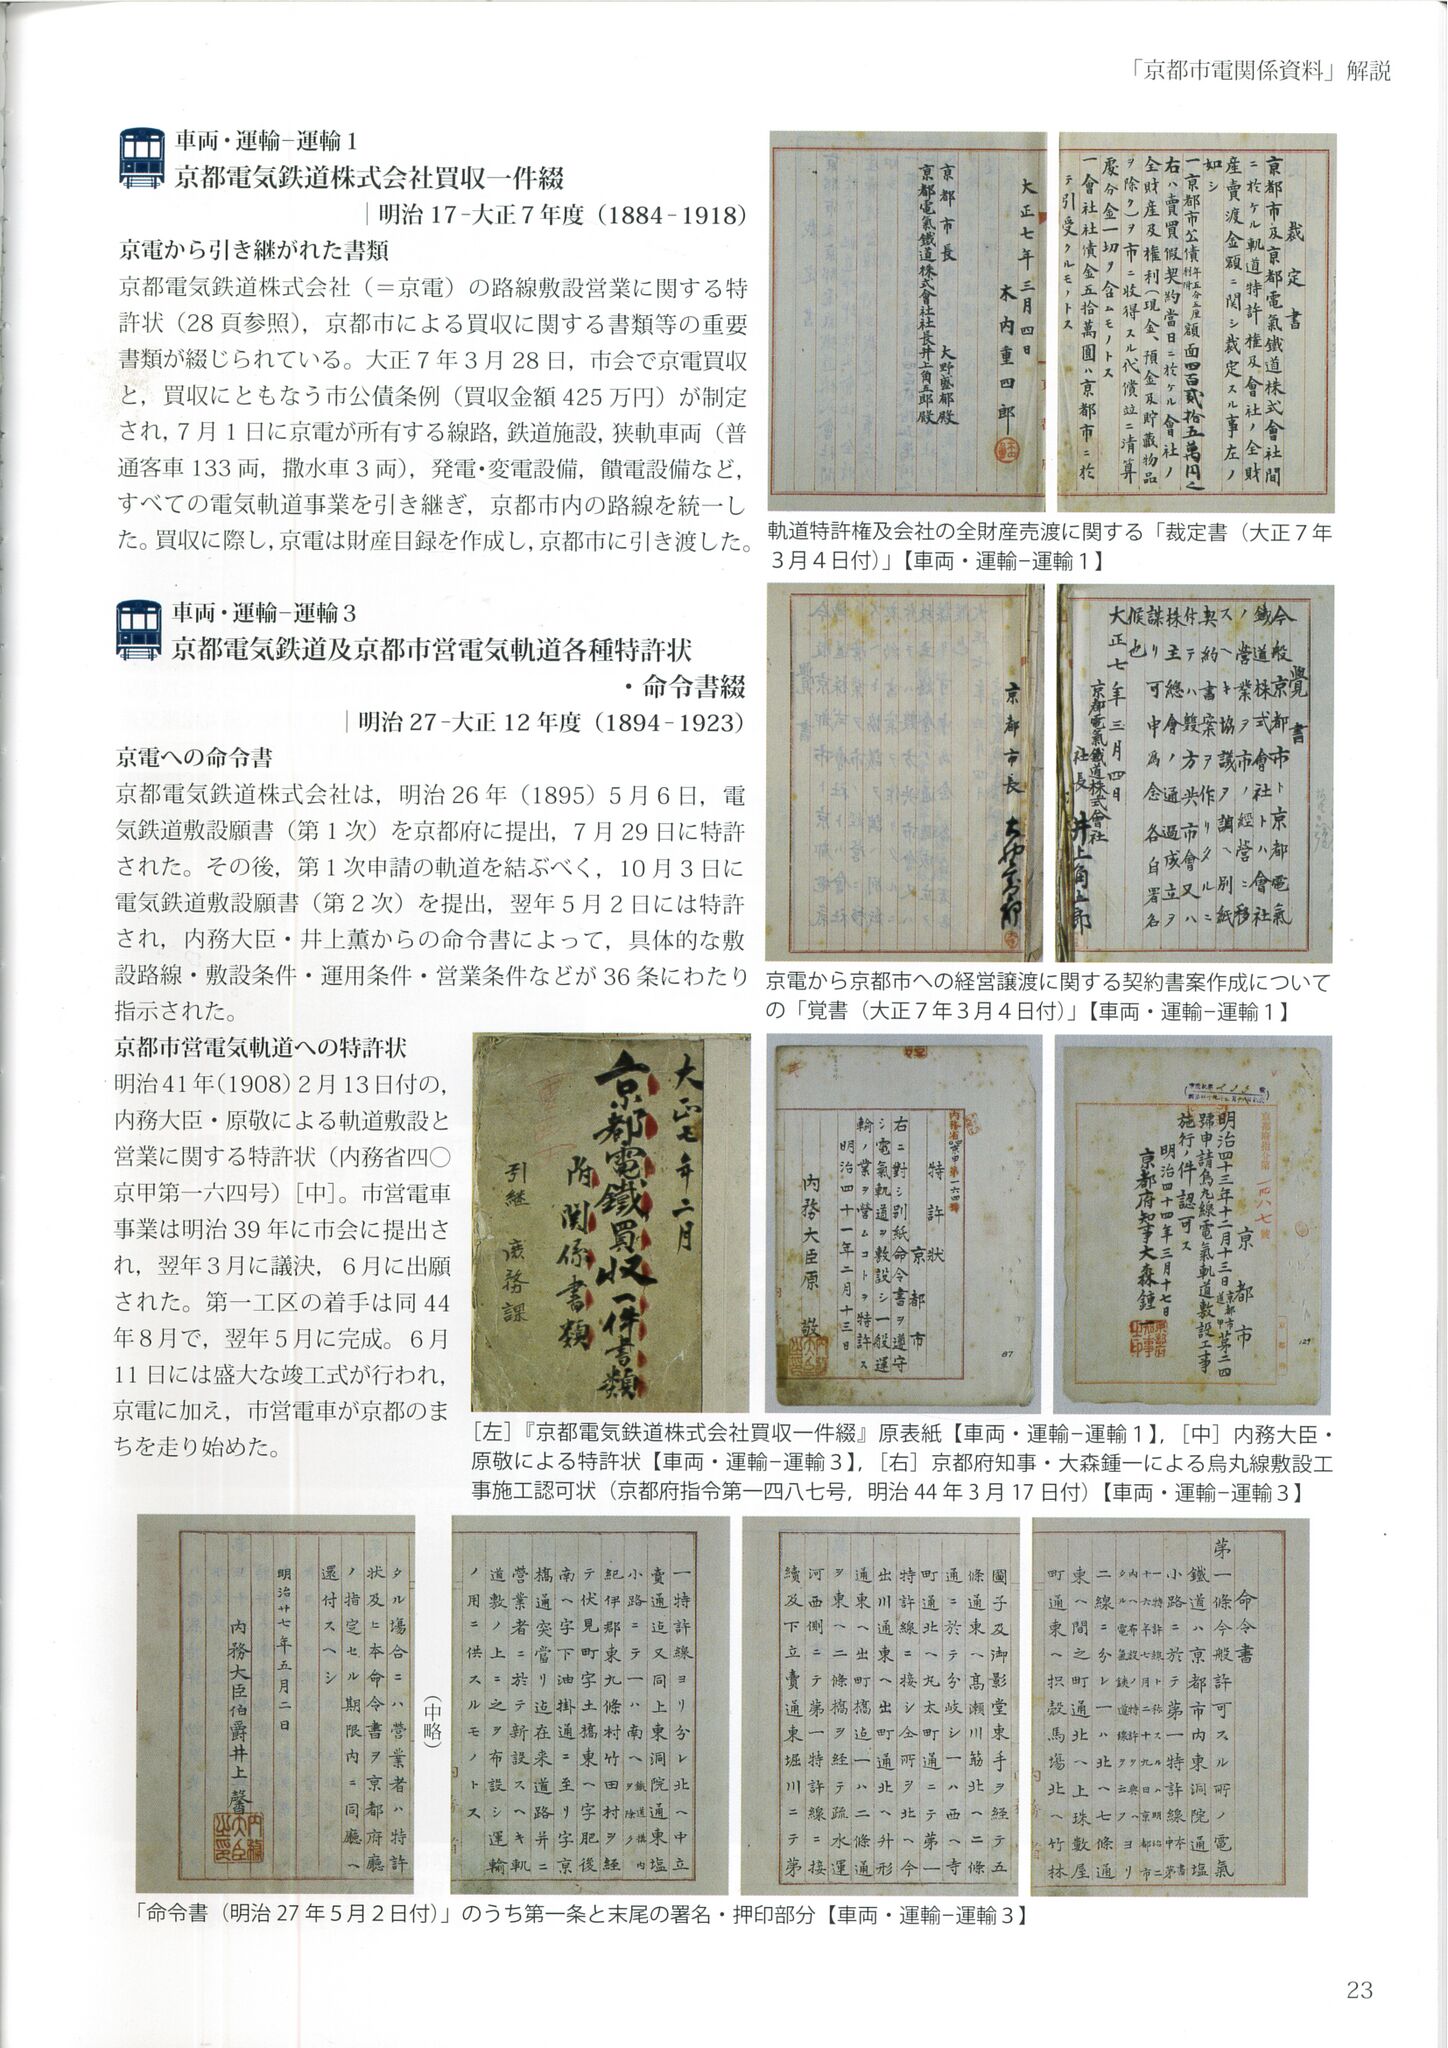 「京都市電関係資料」解説
車両・運輸−運輸1
京都電気鉄道株式会社買収一件綴
｜明治17-大正7年度（1884-1918）
京電から引き継がれた書類
京都電気鉄道株式会社（＝京電）の路線敷設営業に関する特
許状（28頁参照），京都市による買収に関する書類等の重要
書類が綴じられている。大正7年3月28日，市会で京電買収
と，買収にともなう市公債条例（買収金額425万円）が制定
され，7月1日に京電が所有する線路，鉄道施設，狭軌車両（普
通客車133両，撒水車3両），発電・変電設備，饋電設備など，
すべての電気軌道事業を引き継ぎ，京都市内の路線を統一し
た。買収に際し，京電は財産目録を作成し，京都市に引き渡した。
車両・運輸−運輸3
京都電気鉄道及京都市営電気軌道各種特許状
・命令書綴
｜明治27-大正12年度（1894-1923）
京電への命令書
京都電気鉄道株式会社は，明治26年（1895）5月6日，電
気鉄道敷設願書（第1次）を京都府に提出，7月29日に特許
された。その後，第1次申請の軌道を結ぶべく，10月3日に
電気鉄道敷設願書（第2次）を提出，翌年5月2日には特許
され，内務大臣・井上薫からの命令書によって，具体的な敷
設路線・敷設条件・運用条件・営業条件などが36条にわたり
指示された。
京都市営電気軌道への特許状
明治41年(1908) 2月13日付の，
内務大臣・原敬による軌道敷設と
営業に関する特許状（内務省四〇
京甲第一六四号）[中]。市営電車
事業は明治39年に市会に提出さ
れ，翌年3月に議決，6月に出願
された。第一工区の着手は同44
年8月で，翌年5月に完成。6月
11日には盛大な竣工式が行われ，
京電に加え，市営電車が京都のま
ちを走り始めた。
裁定書
京都市及京都電氣鐵道株式會社間
ニ於ケル軌道特許權及會社ノ全財
産賣渡金額ニ関シ裁定スル事左ノ
如シ
一京都市公債年五分五厘利附額面四百貳拾五萬円之
右ハ賣買假契約當日ニ於ケル會社ノ
全財産及権利（現金、預金及貯藏物品
ヲ除ク）ヲ市ニ收得スル代償竝ニ清算
處分金一切ヲ含ムモノトス
一會社社債金五拾萬圓ハ京都市ニ於
テ引受クルモノトス
大正七年三月四日
木内重四郎
京都市長 大野藝都殿
京都電氣鐵道株式會社社長井上角五郎殿
軌道特許権及会社の全財産売渡に関する「裁定書（大正7年
3月4日付）」【車両・運輸−運輸1】
覺書
今般京都市ト京都電氣
鐵道株式會社トハ會社
ノ営業ヲ市ノ經營ニ移
スヘキ協議ヲ調ヘ別紙
契約書案ヲ作リタルニ
付テハ雙方共市會又ハ
株主總會ノ通過成立ヲ
謀リ可申為念各自署名
候也
大正七年三月四日
京都電氣鐵道株式會社
社長 井上角五郎
京都市長
京電から京都市への経営譲渡に関する契約書案作成について
の「覚書（大正7年3月4日付）」【車両・運輸−運輸1】
大正七年二月
京都電鐵買収一件書類
附関係書類
引継 庶務課
特許状
京都市
右ニ對シ別紙命令書ヲ遵守
シ電氣軌道ヲ敷設シ一般運
輸ノ業ヲ營ムコトヲ特許ス
明治四十一年二月十三日
内務大臣原 敬
87
京都府指令第一四八七號
京都市
明治四十三年十二月十三日京都市第二四
號申請烏丸線電氣軌道敷設工事
施行ノ件認可ス
明治四十四年三月十七日
京都府知事大森鍾一
129
［左］『京都電気鉄道株式会社買収一件綴』原表紙【車両・運輸−運輸1】，［中］内務大臣・
原敬による特許状【車両・運輸−運輸3】，［右］京都府知事・大森鍾一による烏丸線敷設工
事施工認可状（京都府指令第一四八七号，明治44年3月17日付）【車両・運輸−運輸3】
命令書
第一條今般許可スル所ノ電氣
鐵道ハ京都市内東洞院通塩
小路ニ於テ第一特許線
二線ニ分レ一ハ北ヘ七條通
東ヘ間之町通北ヘ上珠數屋
町通東ヘ枳殼馬場北ヘ竹林
圖子及御影堂東手ヲ経テ五
條通東ヘ高瀬川筋北ヘ二條
通ニ於テ分岐シ一ハ西ヘ寺
町通北ヘ丸太町通ニテ第一
特許線ニ接シ仝所ヲ北ヘ今
出川通東ヘ出町通北ヘ升形
通東ヘ出町橋迄一ハ二條通
ヲ東ヘ二條橋ヲ経テ疏水運
河西側ニテ第一特許線ニ接
續及下立賣通東堀川ニテ第
一特許線ヨリ分レ北ヘ中立
賣通迄又同上東洞院通東塩
小路ニテ一ハ南ヘ鐵道構内ヲ除ク
紀伊郡東九條村竹田村ヲ経
テ伏見町字土橋東ヘ字肥後
南ヘ字下油掛通ニ至リ字京
橋通突當リ迄在来道路并ニ
營業者ニ於テ新設スヘキ軌
道敷ノ上ニ之ヲ布設シ運輸
ノ用ニ供スルモノトス
（中略）
タル場合ニハ營業者ハ特許
状及ヒ本命令書ヲ京都府廳
ノ指定セル期限内ニ同廳ヘ
還付スヘシ
明治廿七年五月二日
内務大臣伯爵井上馨
「命令書（明治27年5月2日付）」のうち第一条と末尾の署名・押印部分【車両・運輸−運輸3】
23